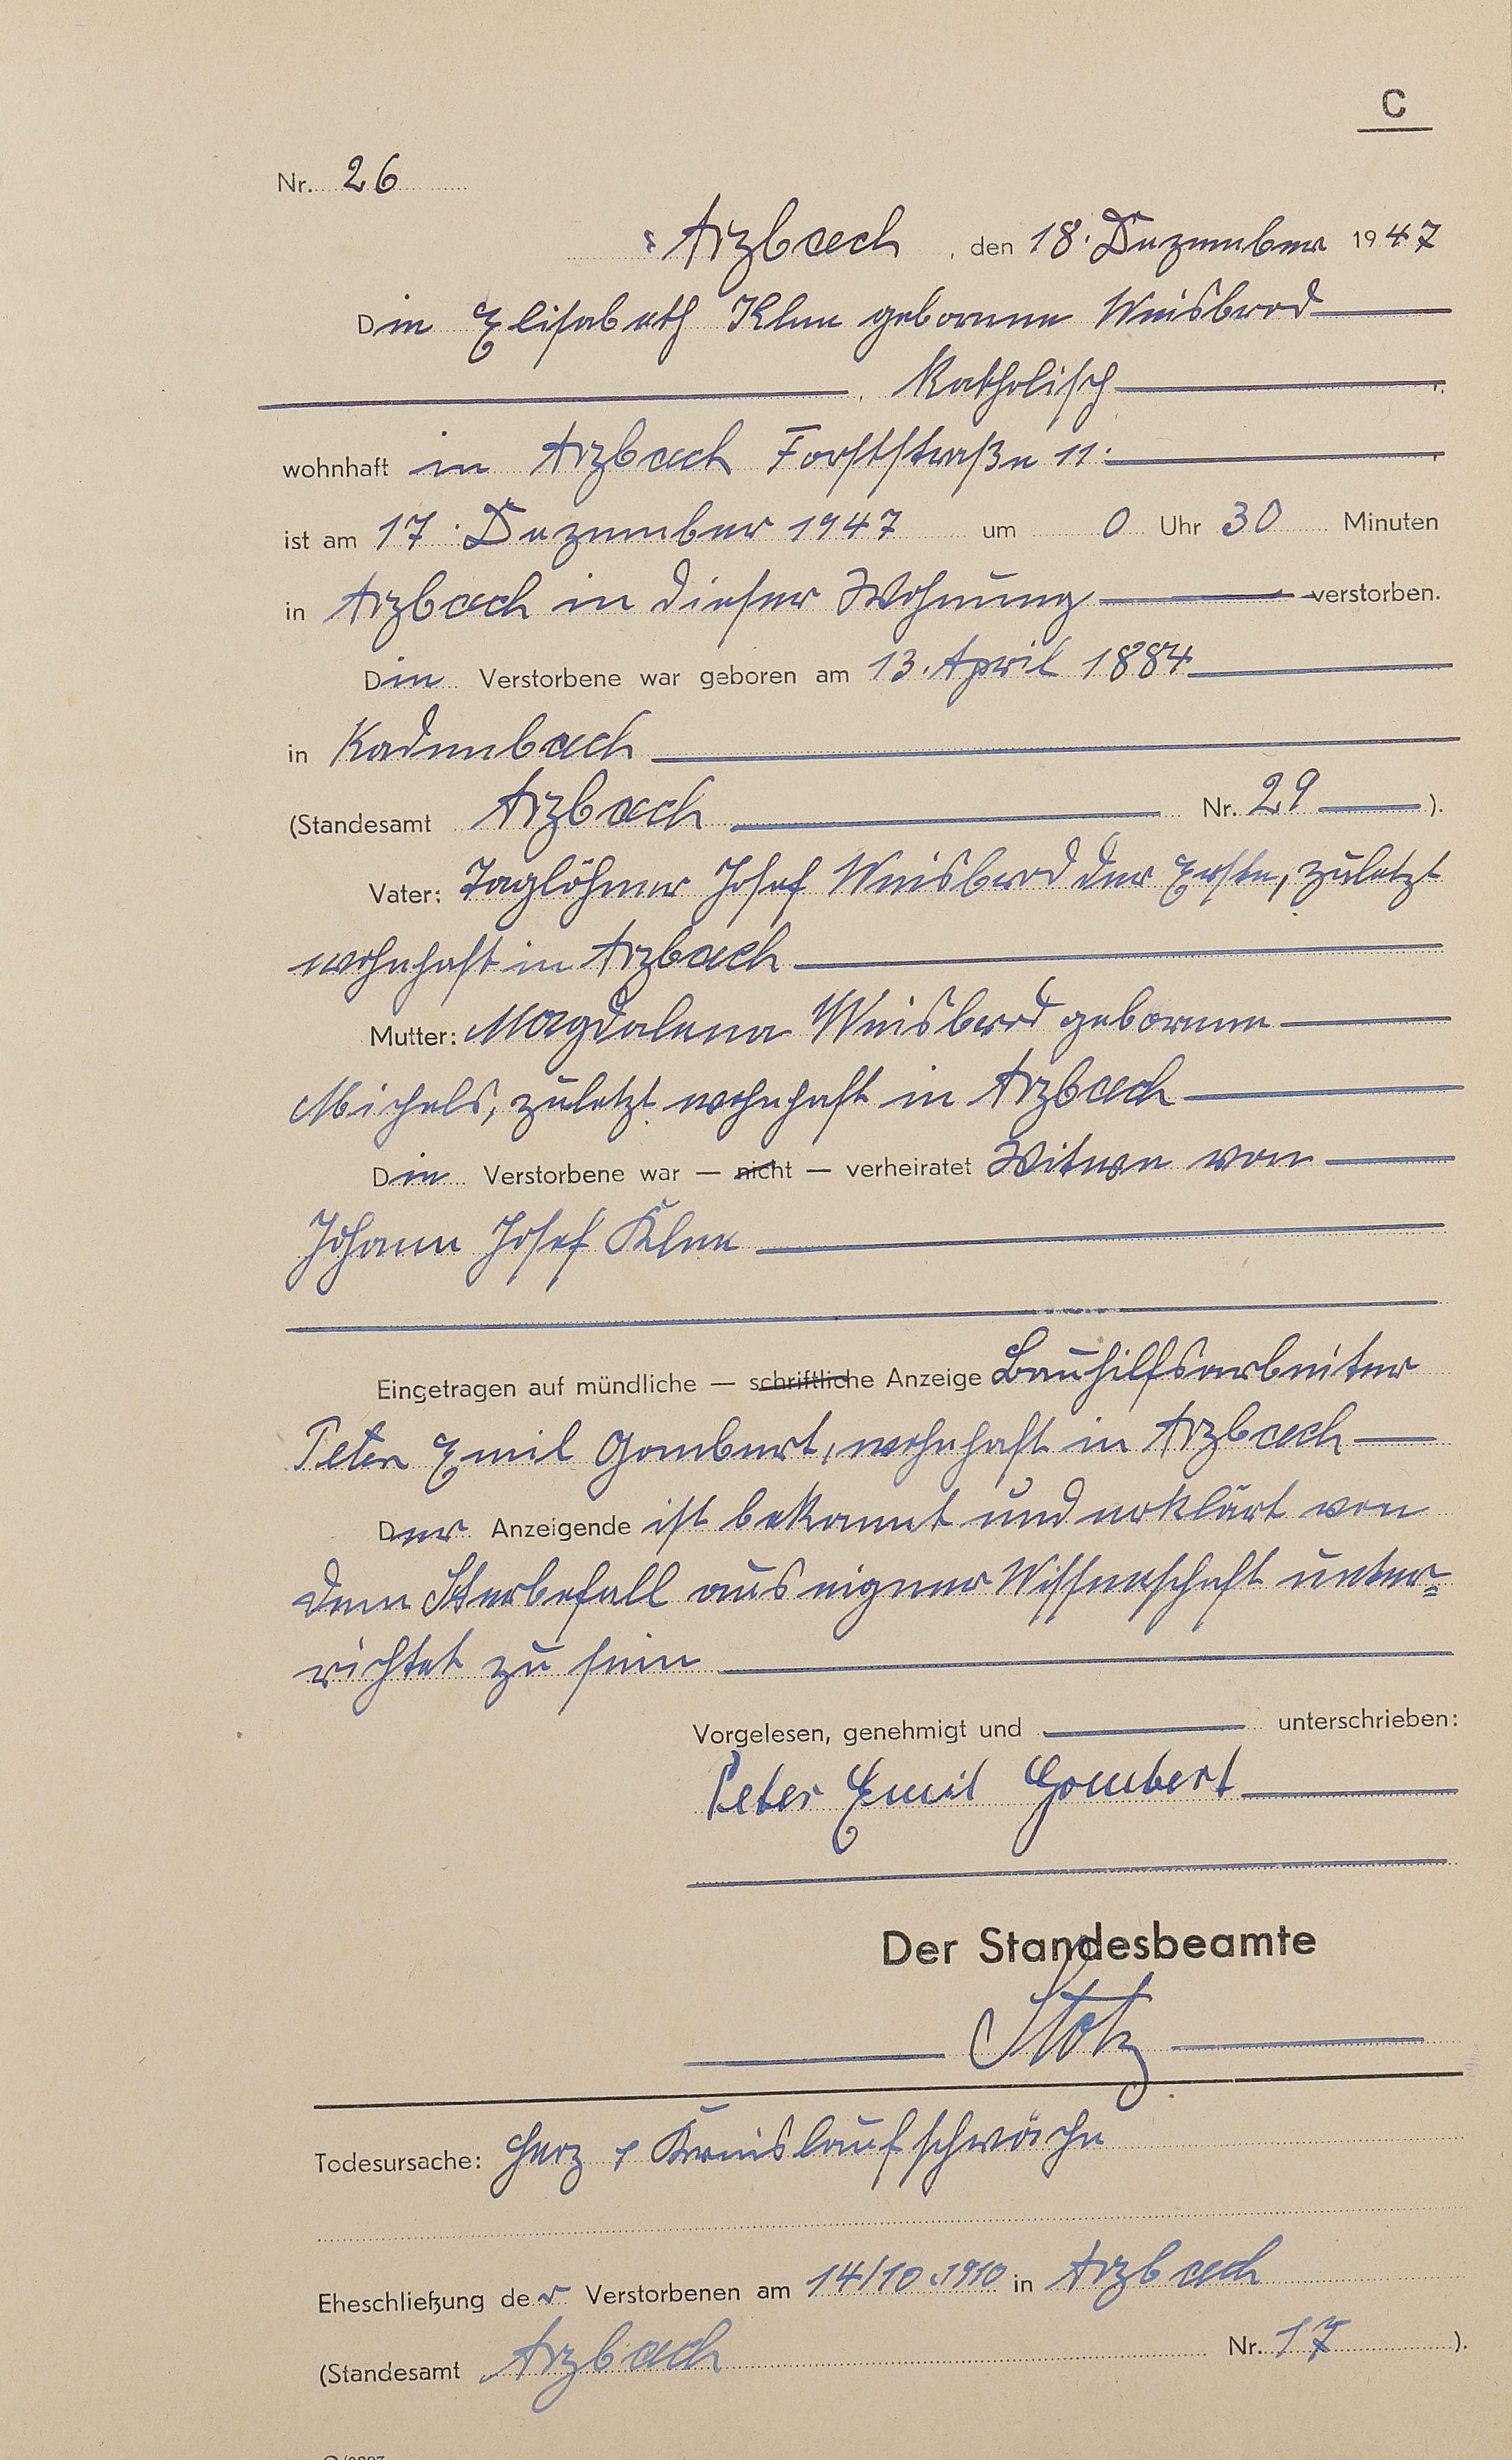 C
Nr. 26
Arzbach, den 18. Dezember 1947
Die Elisabeth Klee geborene Weisbrod
, Katholisch
wohnhaft in Arzbach Forststraße 11.
ist am 17. Dezember 1947 um 0 Uhr 30 Minuten
in Arzbach in dieser Wohnung verstorben.
Die Verstorbene war geboren am 13. April 1884
in Kadenbach
(Standesamt Arzbach Nr. 29 ).
Vater: Taglöhner Josef Weisbrod der Erste, zuletzt
wohnhaft in Arzbach
Mutter: Magdalena Weisbrod geborene
Michels, zuletzt wohnhaft in Arzbach
Die Verstorbene war — nicht — verheiratet Witwe von
Johann Josef Klee
Eingetragen auf mündliche — schriftliche Anzeige Bauhilfsarbeiter
Peter Emil Gombert, wohnhaft in Arzbach
Der Anzeigende ist bekannt und erklärt von
dem Sterbefall aus eigner Wissenschaft unter=
richtet zu sein
Vorgelesen, genehmigt und unterschrieben:
Peter Emil Gombert
Der Standesbeamte
Stotz
Todesursache: Herz, Kreislaufschwäche
Eheschließung der Verstorbenen am 14/10.1910 in Arzbach
(Standesamt Arzbach Nr. 17 ).